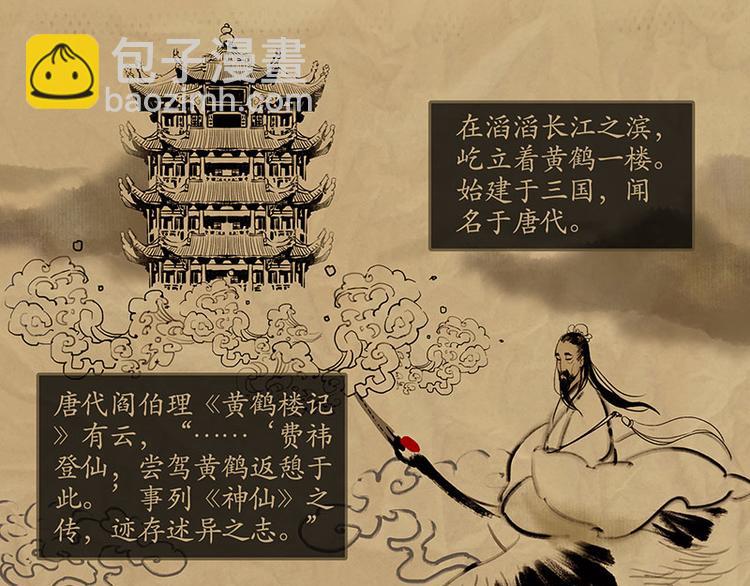 包子漫畫
baozimh.com
在滔滔长江之滨，
屹立着黄鹤一楼。
始建于三国，闻
名于唐代。
唐代阎伯理《黄鹤楼记
》有云，“……‘费祎
登仙；尝驾黄鹤返憩于
此。’事列《神仙》之
传，迹存述异之志。”